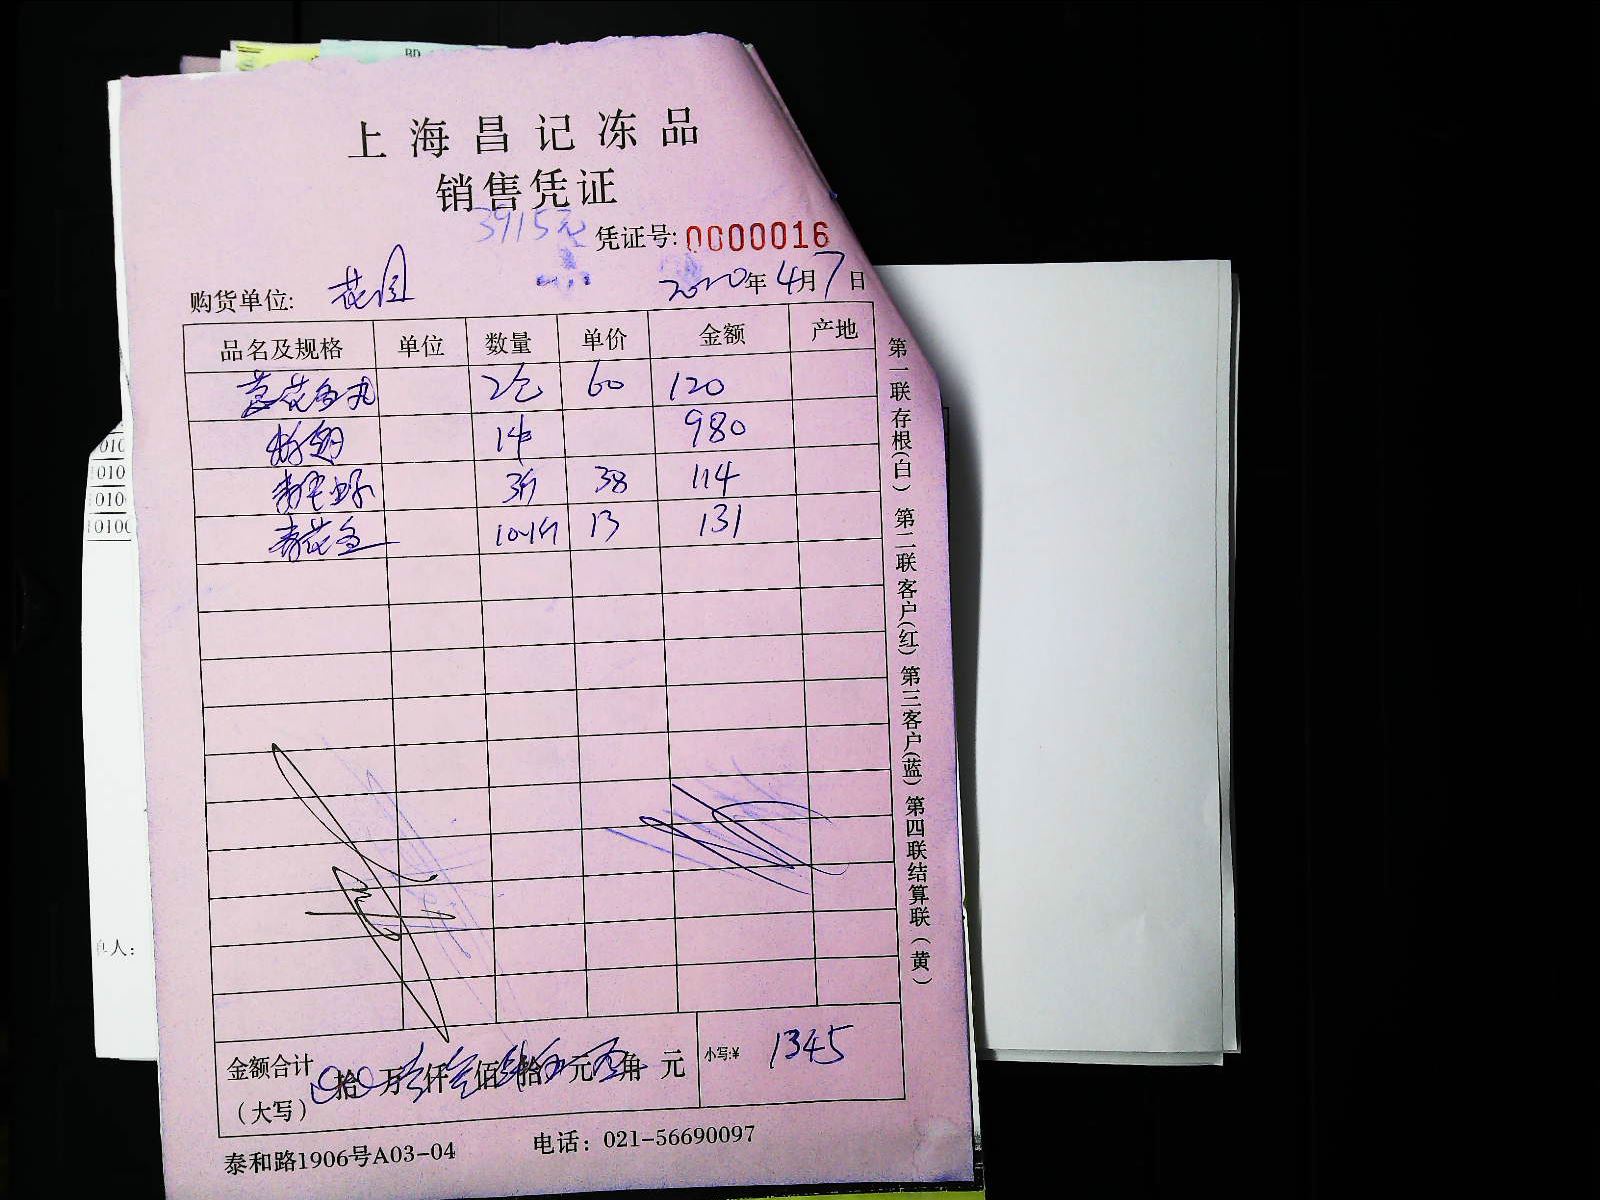 BD
上海昌记冻品
销售凭证
3915元
凭证号: 0000016
购货单位: 花园 2020年4月7日
品名及规格 单位 数量 单价 金额 产地
花鱼丸 2包 60 120
翅 1件 980
3斤 38 114
青花鱼 10.1斤 13 131
金额合计 拾 万 仟 佰 拾 元 角 元 小写:¥ 1345
(大写)
泰和路1906号A03-04 电话: 021-56690097
第一联存根(白) 第二联客户(红) 第三客户(蓝) 第四联结算联(黄)
010
010
010
0100
人: